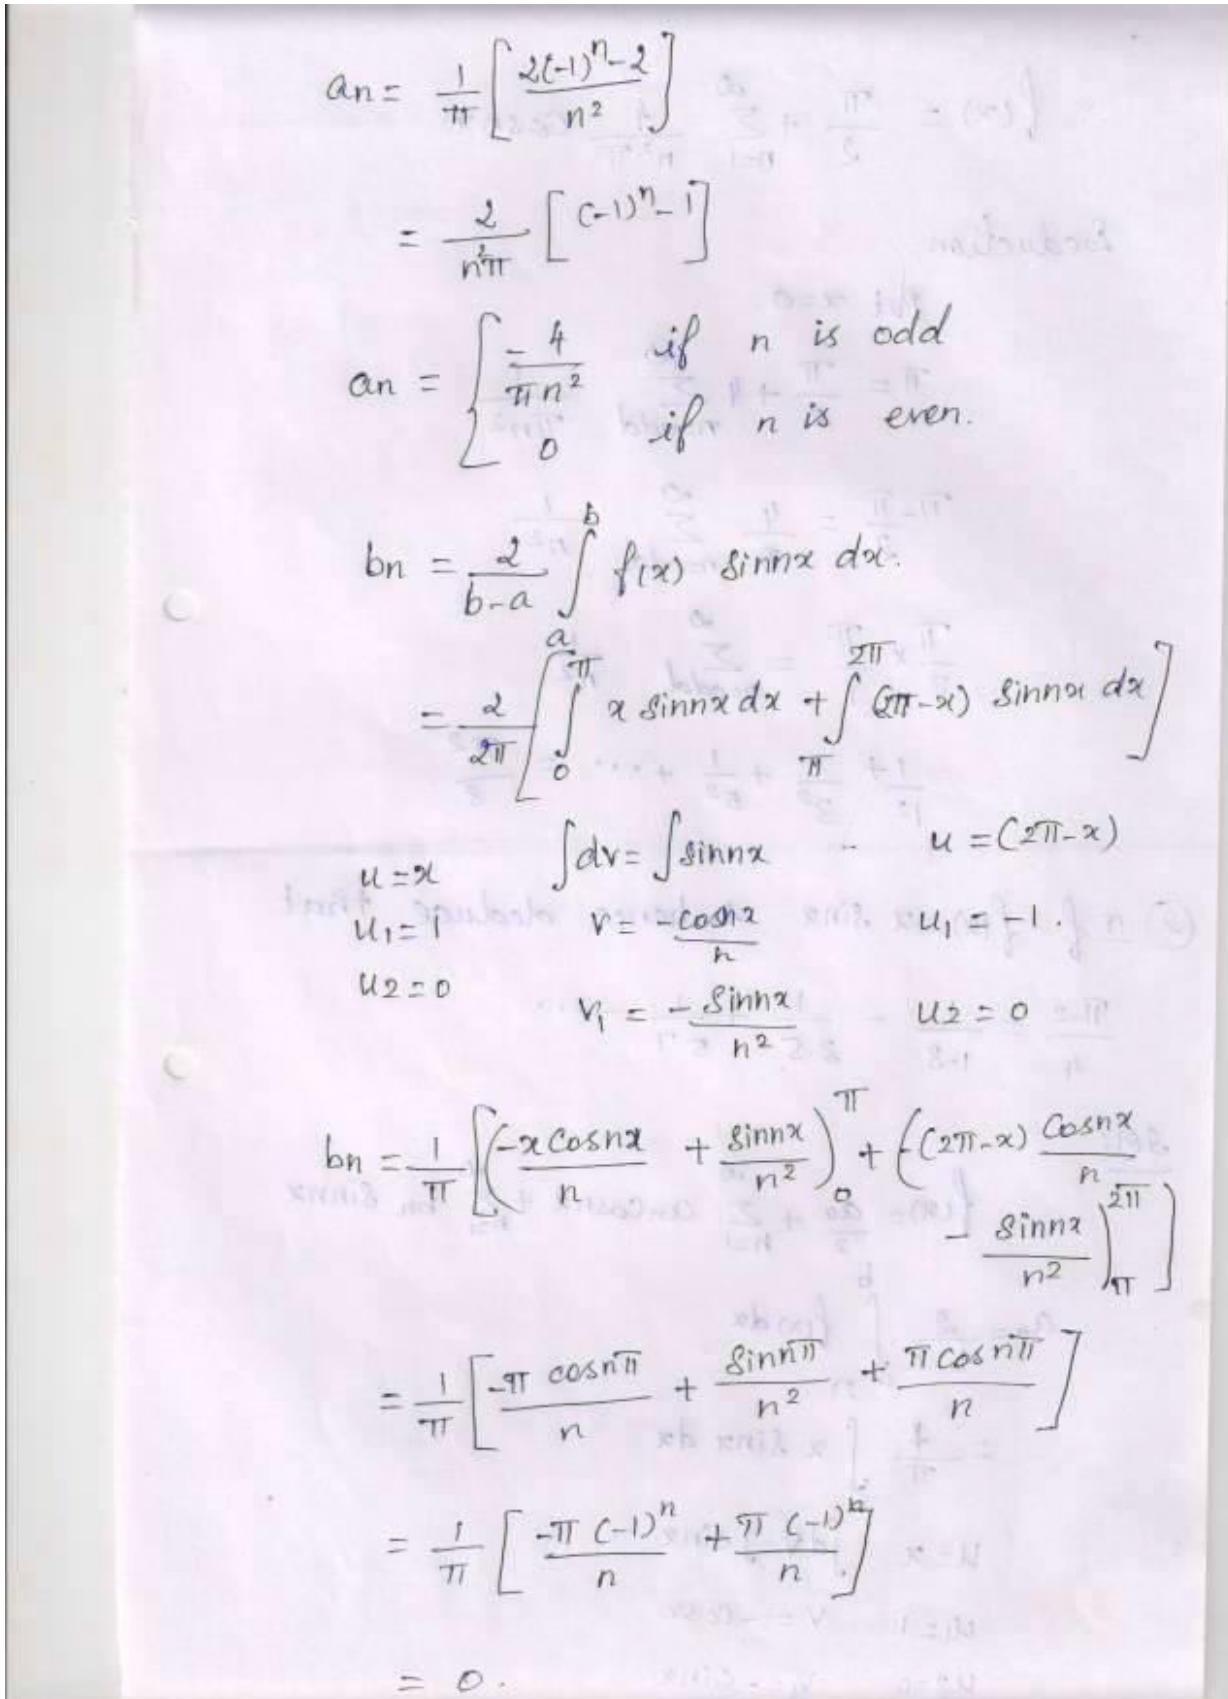 an = 1/π [ (2(-1)^n - 2)/n² ]
= 2/(n²π) [ (-1)^n - 1 ]
an = { -4/(πn²) if n is odd
0 if n is even.
bn = 2/(b-a) ∫_a^b f(x) sinnx dx.
= 2/(2π) [ ∫_0^π x sinnx dx + ∫_π^2π (2π-x) sinnx dx ]
u = x ∫dv = ∫sinnx u = (2π-x)
u1 = 1 v = -cosnx/n u1 = -1.
u2 = 0 v1 = -sinnx/n² u2 = 0
bn = 1/π [ ( -x cosnx/n + sinnx/n² )_0^π + ( -(2π-x) cosnx/n
- sinnx/n² )_π^2π ]
= 1/π [ -π cosnπ/n + sinnπ/n² + π cosnπ/n ]
= 1/π [ -π (-1)^n/n + π (-1)^n/n ]
= 0.